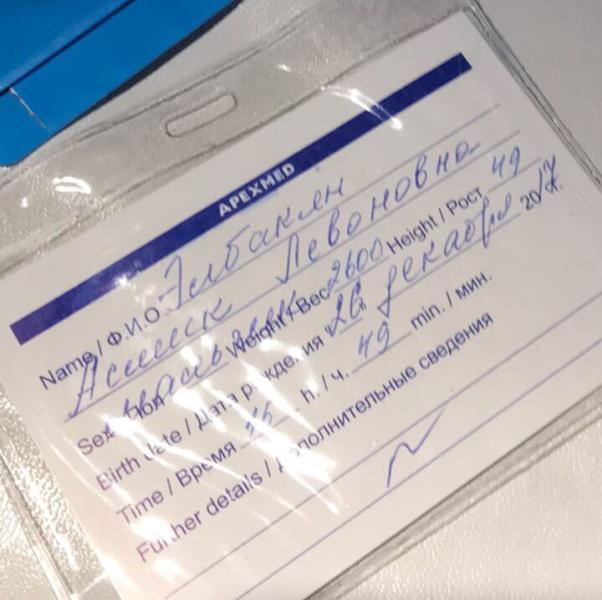 APEXMED
Name / Ф.И.О. Элбакян
Левоновна
Sex / Пол Weight / Вес 2600 Height / Рост 49
Birth date / Дата рождения 26 декабря 2017г.
Time / Время h. / ч. 49 min. / мин.
Further details / Дополнительные сведения